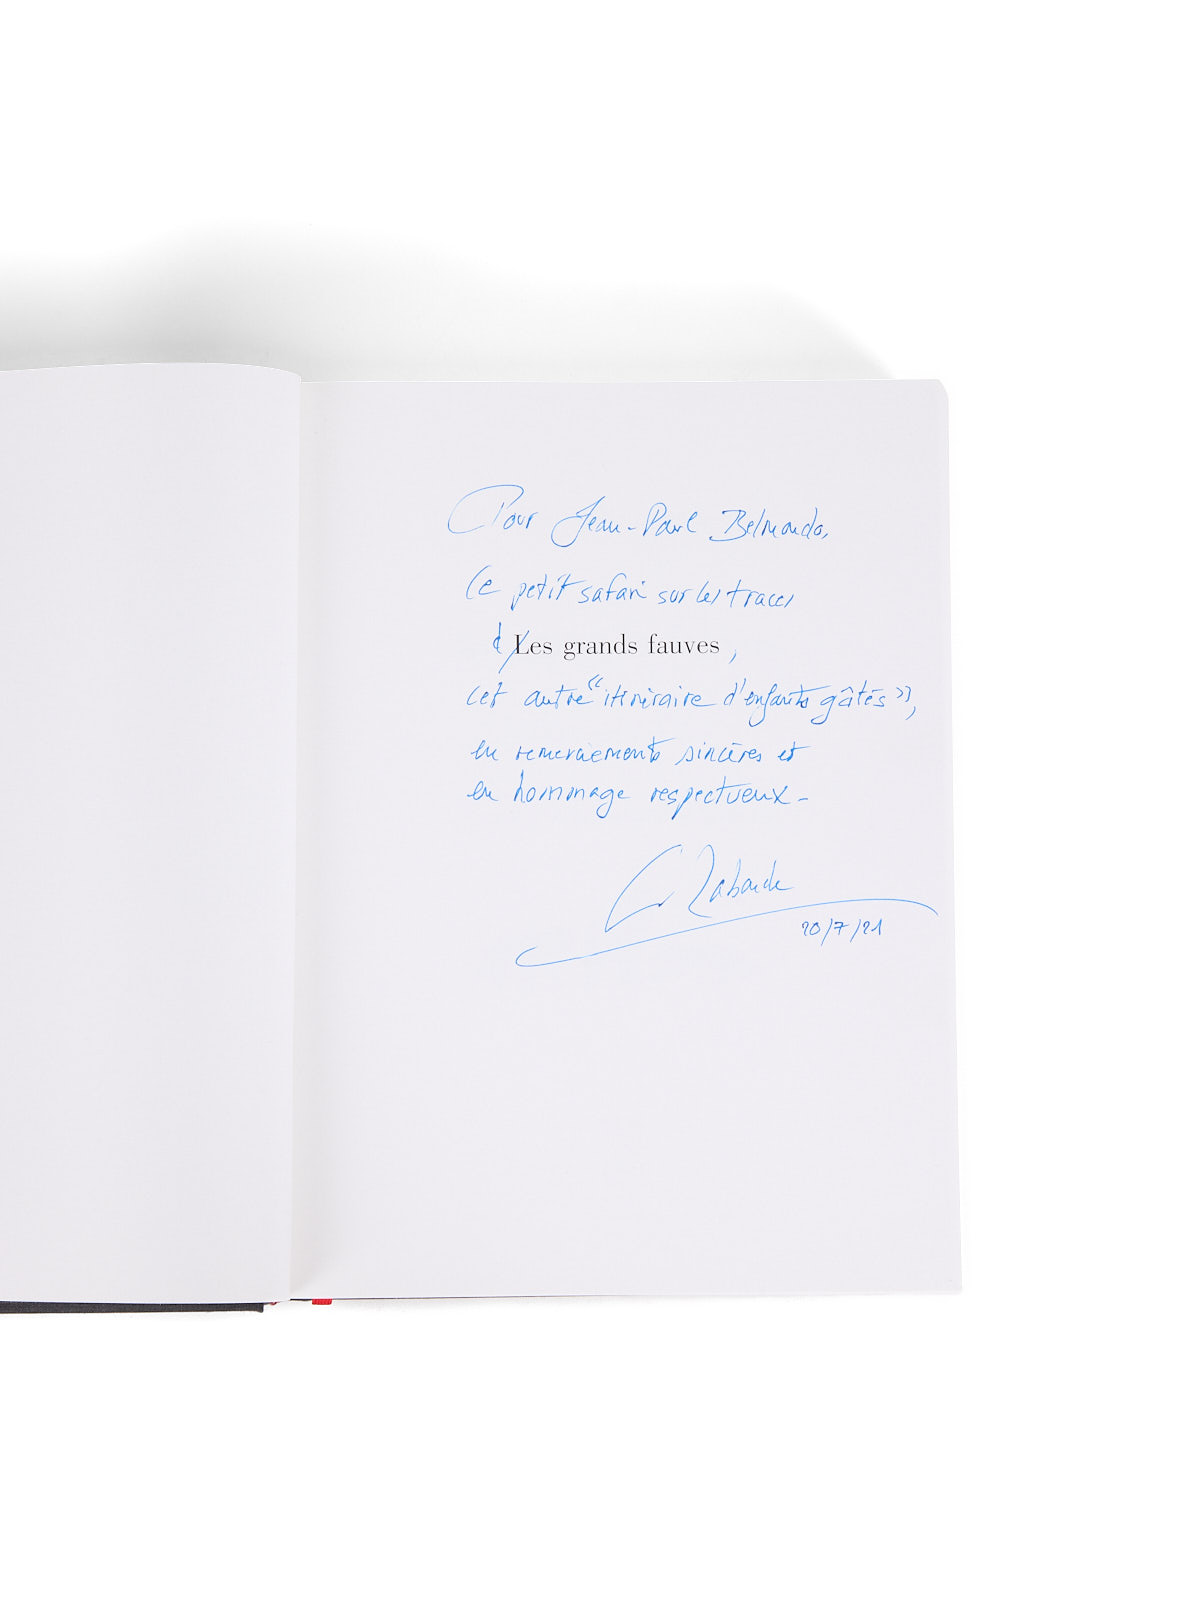 Pour Jean-Paul Belmondo,
Ce petit safari sur les traces
d Les grands fauves,
cet autre “itinéraire d'enfants gâtés”,
en remerciements sincères et
en hommage respectueux -
20/7/21